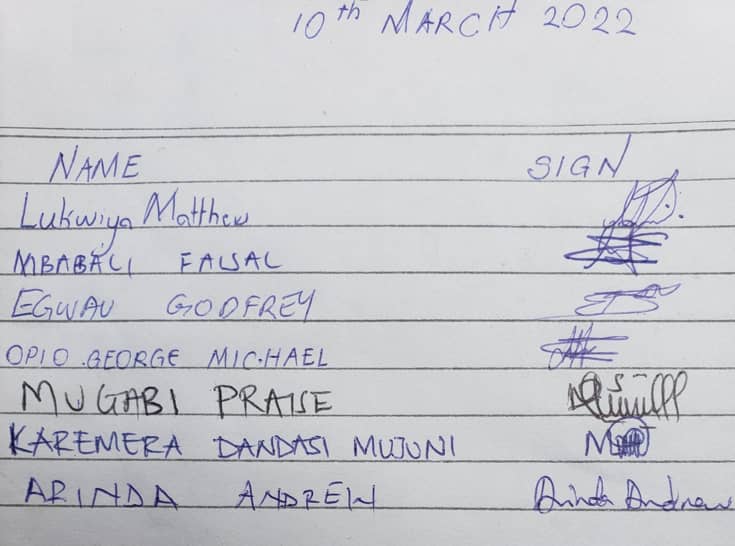 10th MARCH 2022
NAME SIGN
Lukwiya Matthew
MBABALI FAISAL
EGWAU GODFREY
OPIO GEORGE MICHAEL
MUGABI PRAISE
KAREMERA DANDASI MUJUNI
ARINDA ANDREW Arinda Andrew